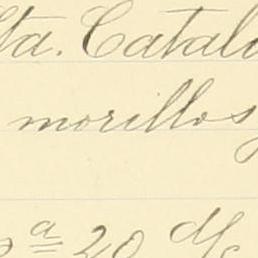 Sta. Catal
morillos
a 20 d/c